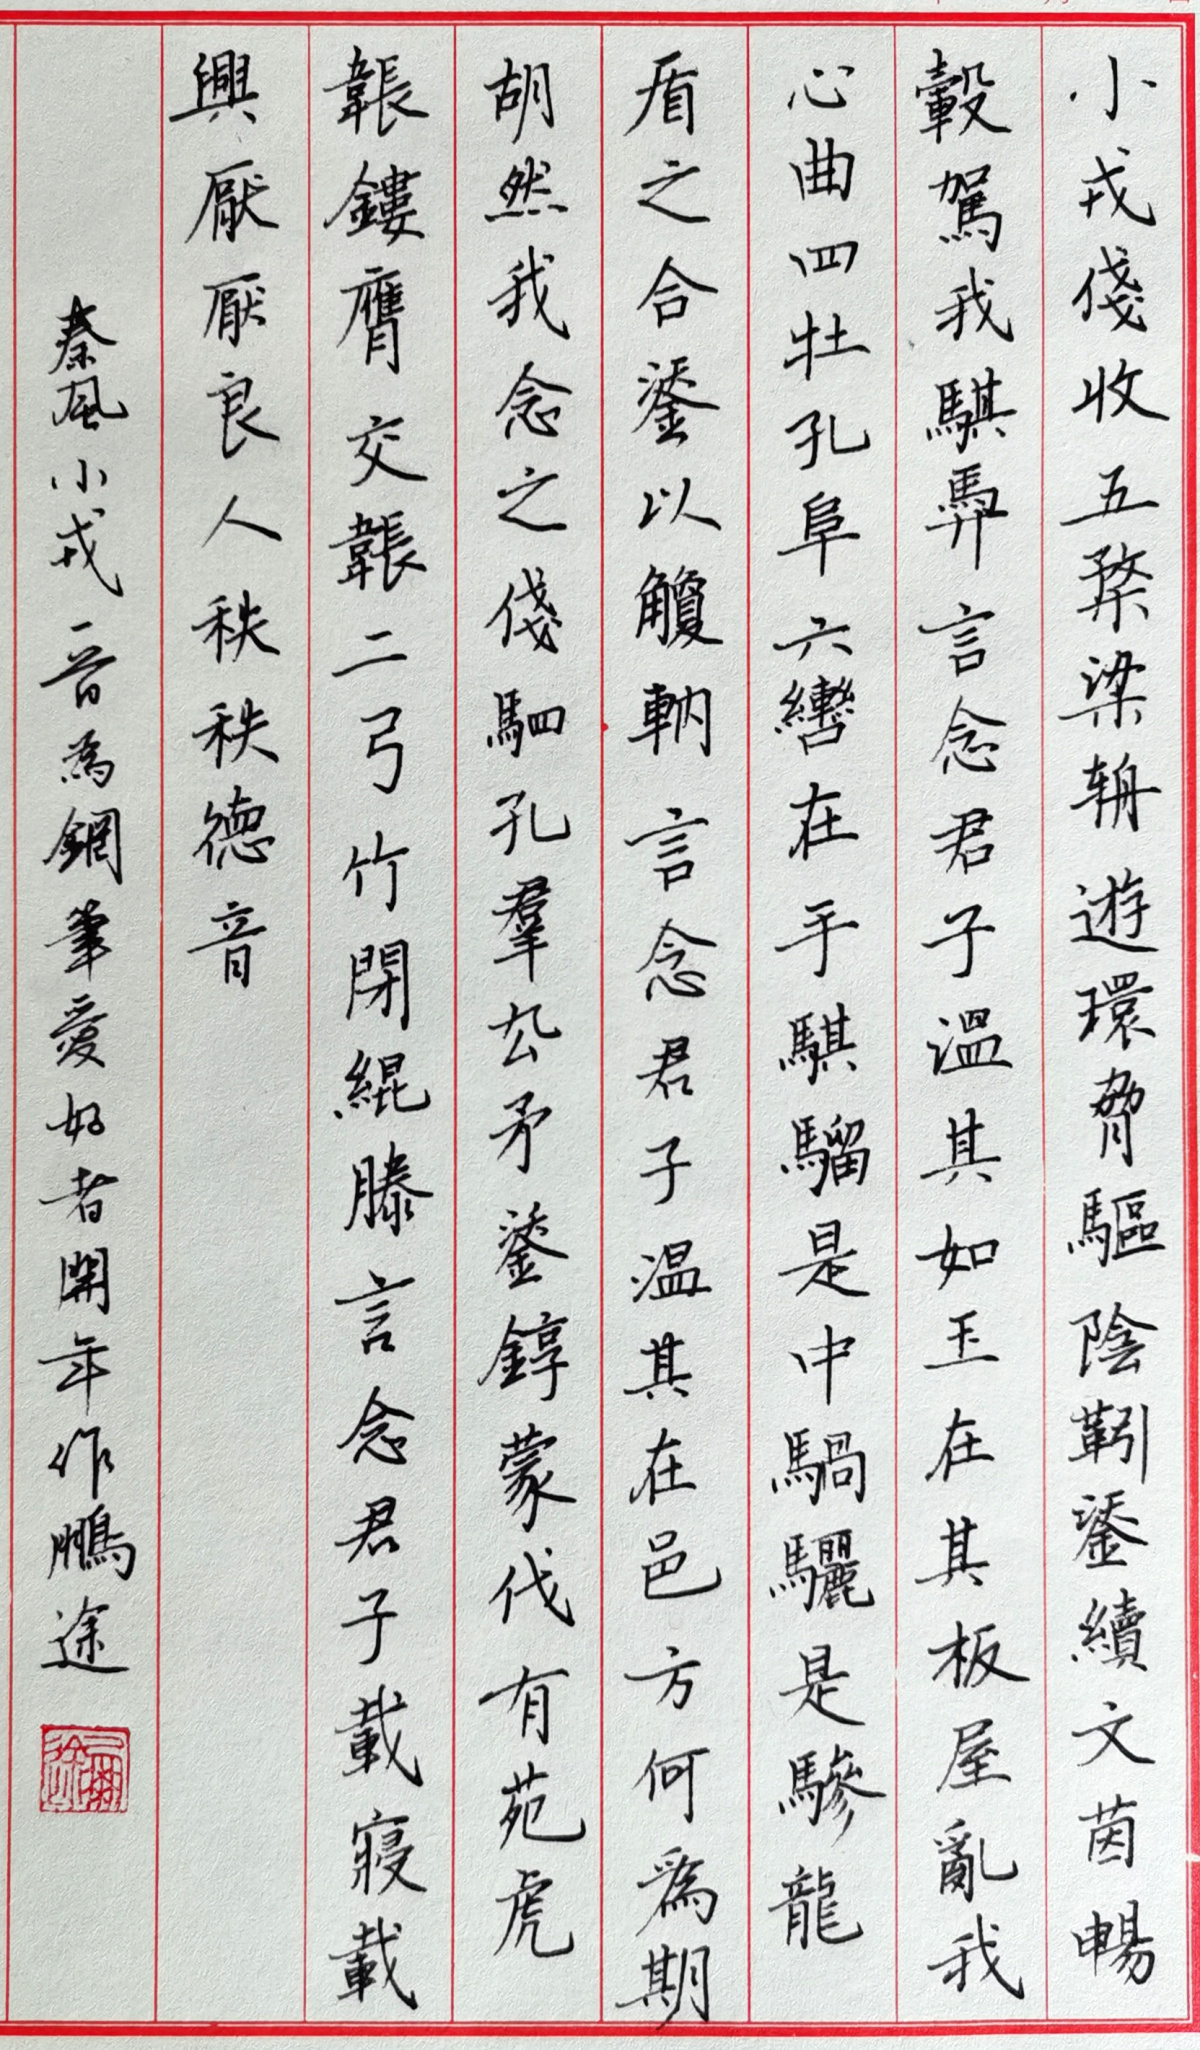 小戎俴收五楘梁輈遊環脅驅陰靷鋈續文茵暢
轂駕我騏馵言念君子溫其如玉在其板屋亂我
心曲四牡孔阜六轡在手騏騮是中騧驪是驂龍
盾之合鋈以觼軜言念君子温其在邑方何爲期
胡然我念之俴駟孔羣厹矛鋈錞蒙伐有苑虎
韔鏤膺交韔二弓竹閉緄縢言念君子載寢載
興厭厭良人秩秩德音
秦風小戎一音爲鋼筆愛好者開年作鵬途